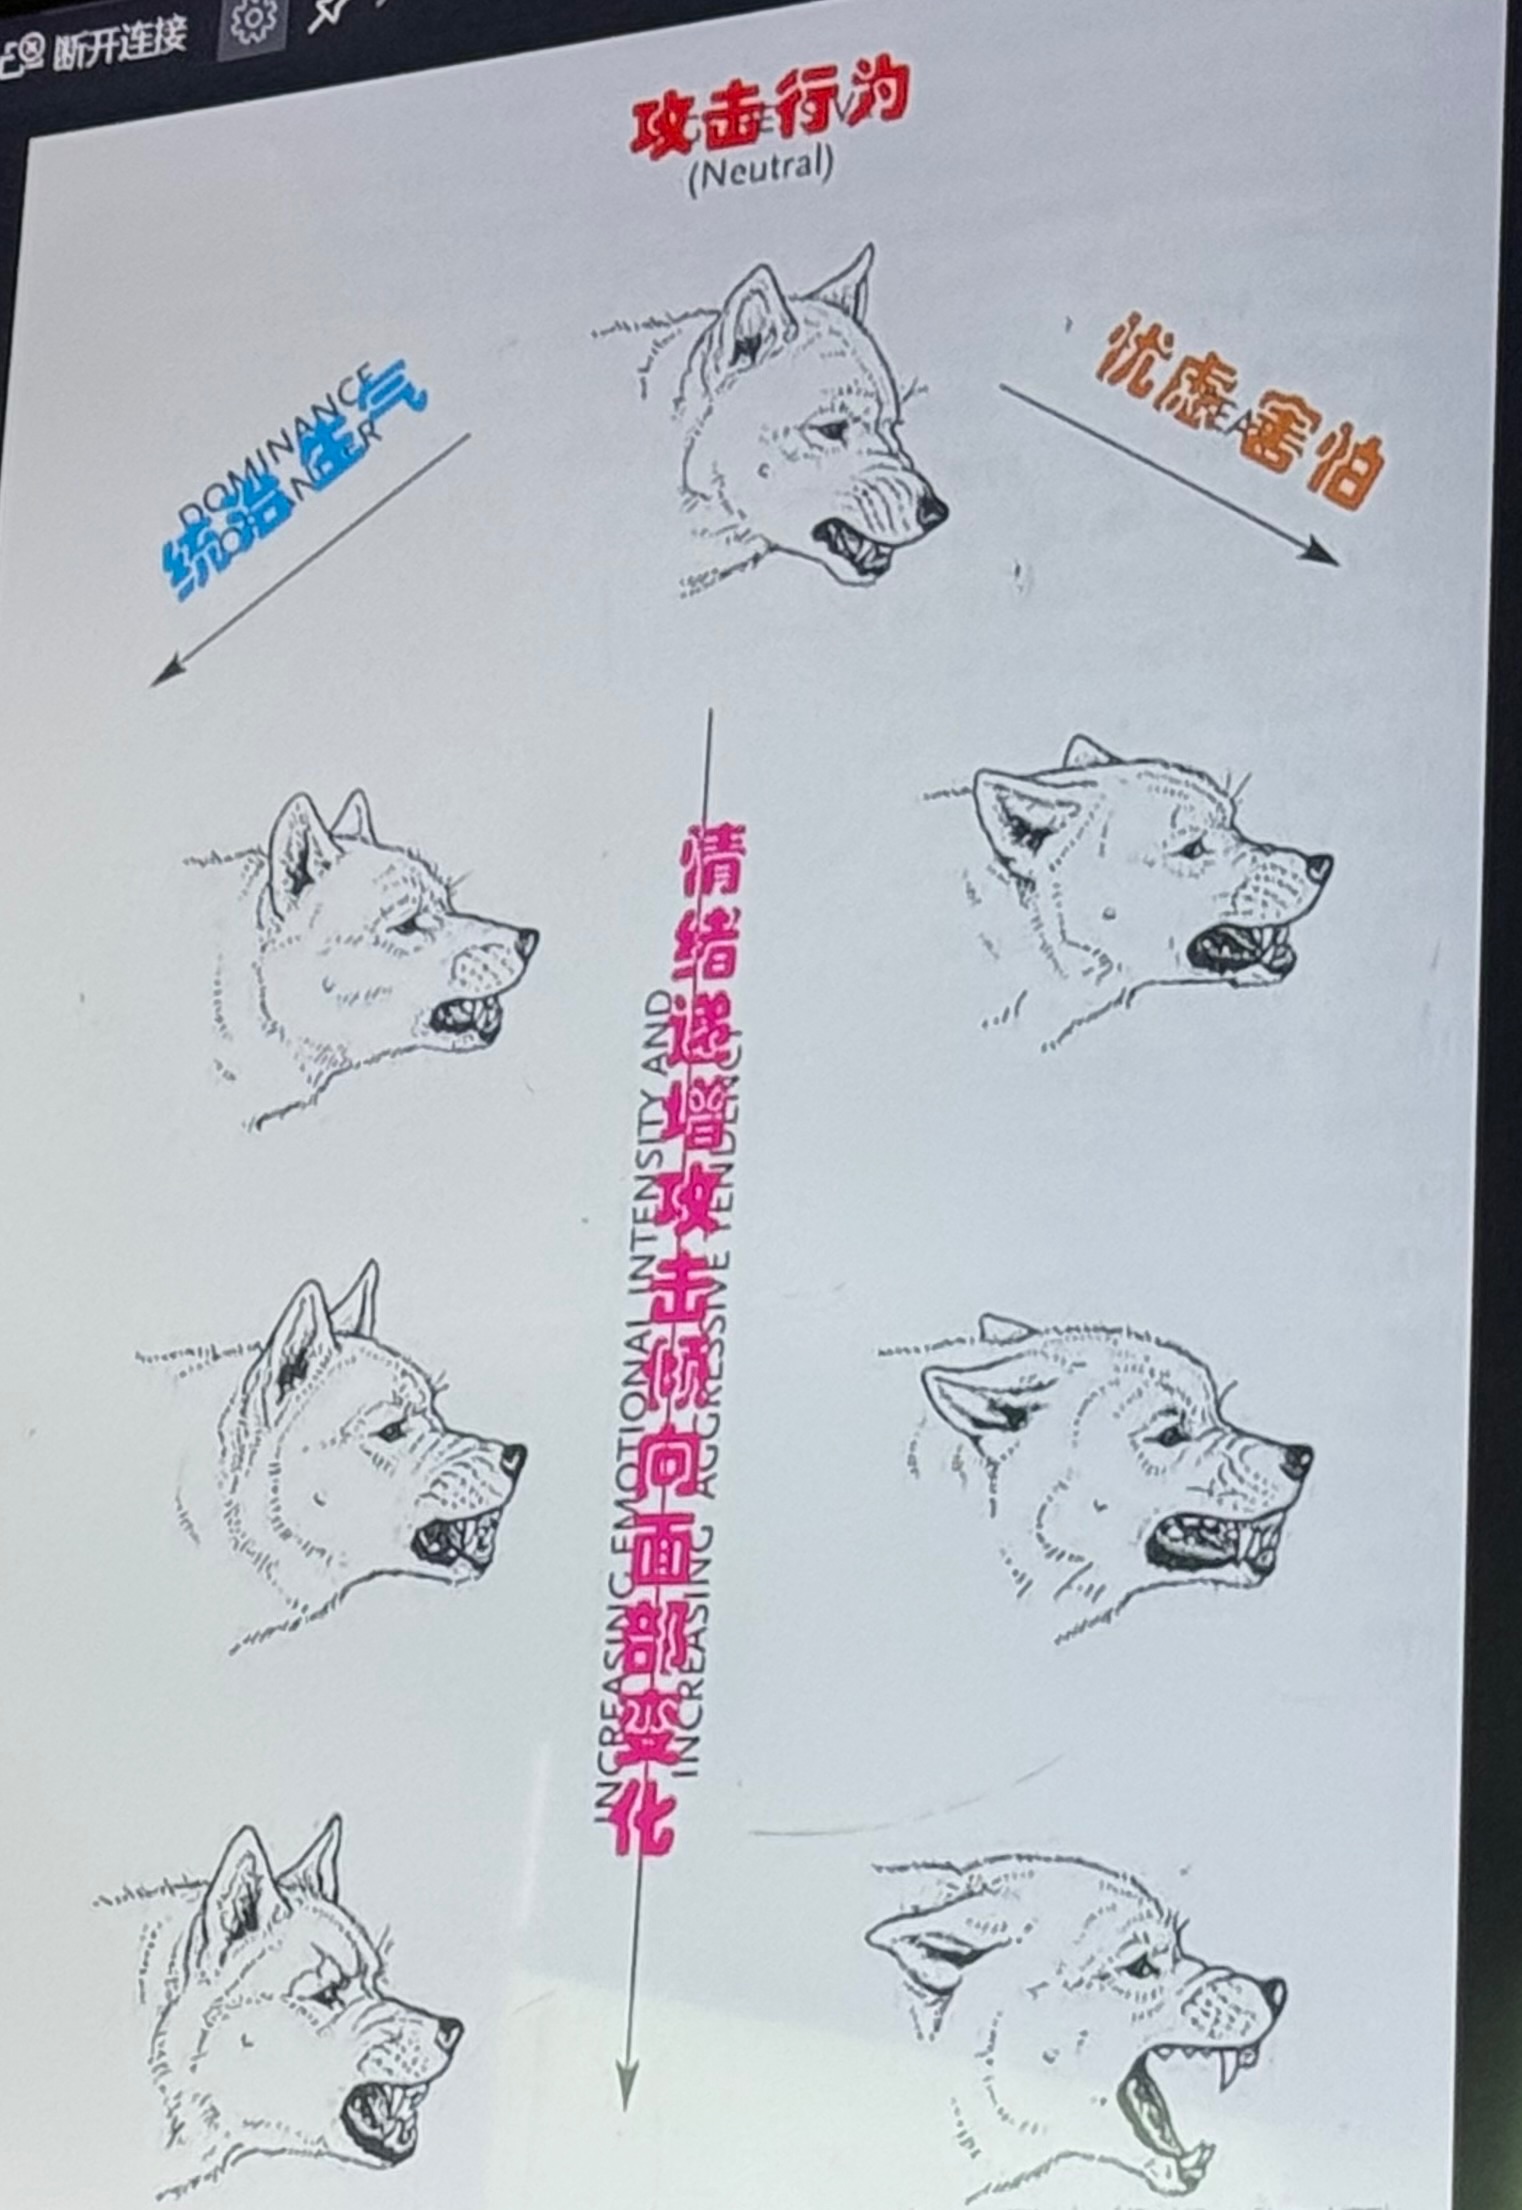 断开连接
攻击行为
(Neutral)
DOMINANCE
统治 生气
忧虑 害怕
情绪递增攻击倾向面部变化
INCREASING EMOTIONAL INTENSITY AND
INCREASING AGGRESSIVE TENDENCY